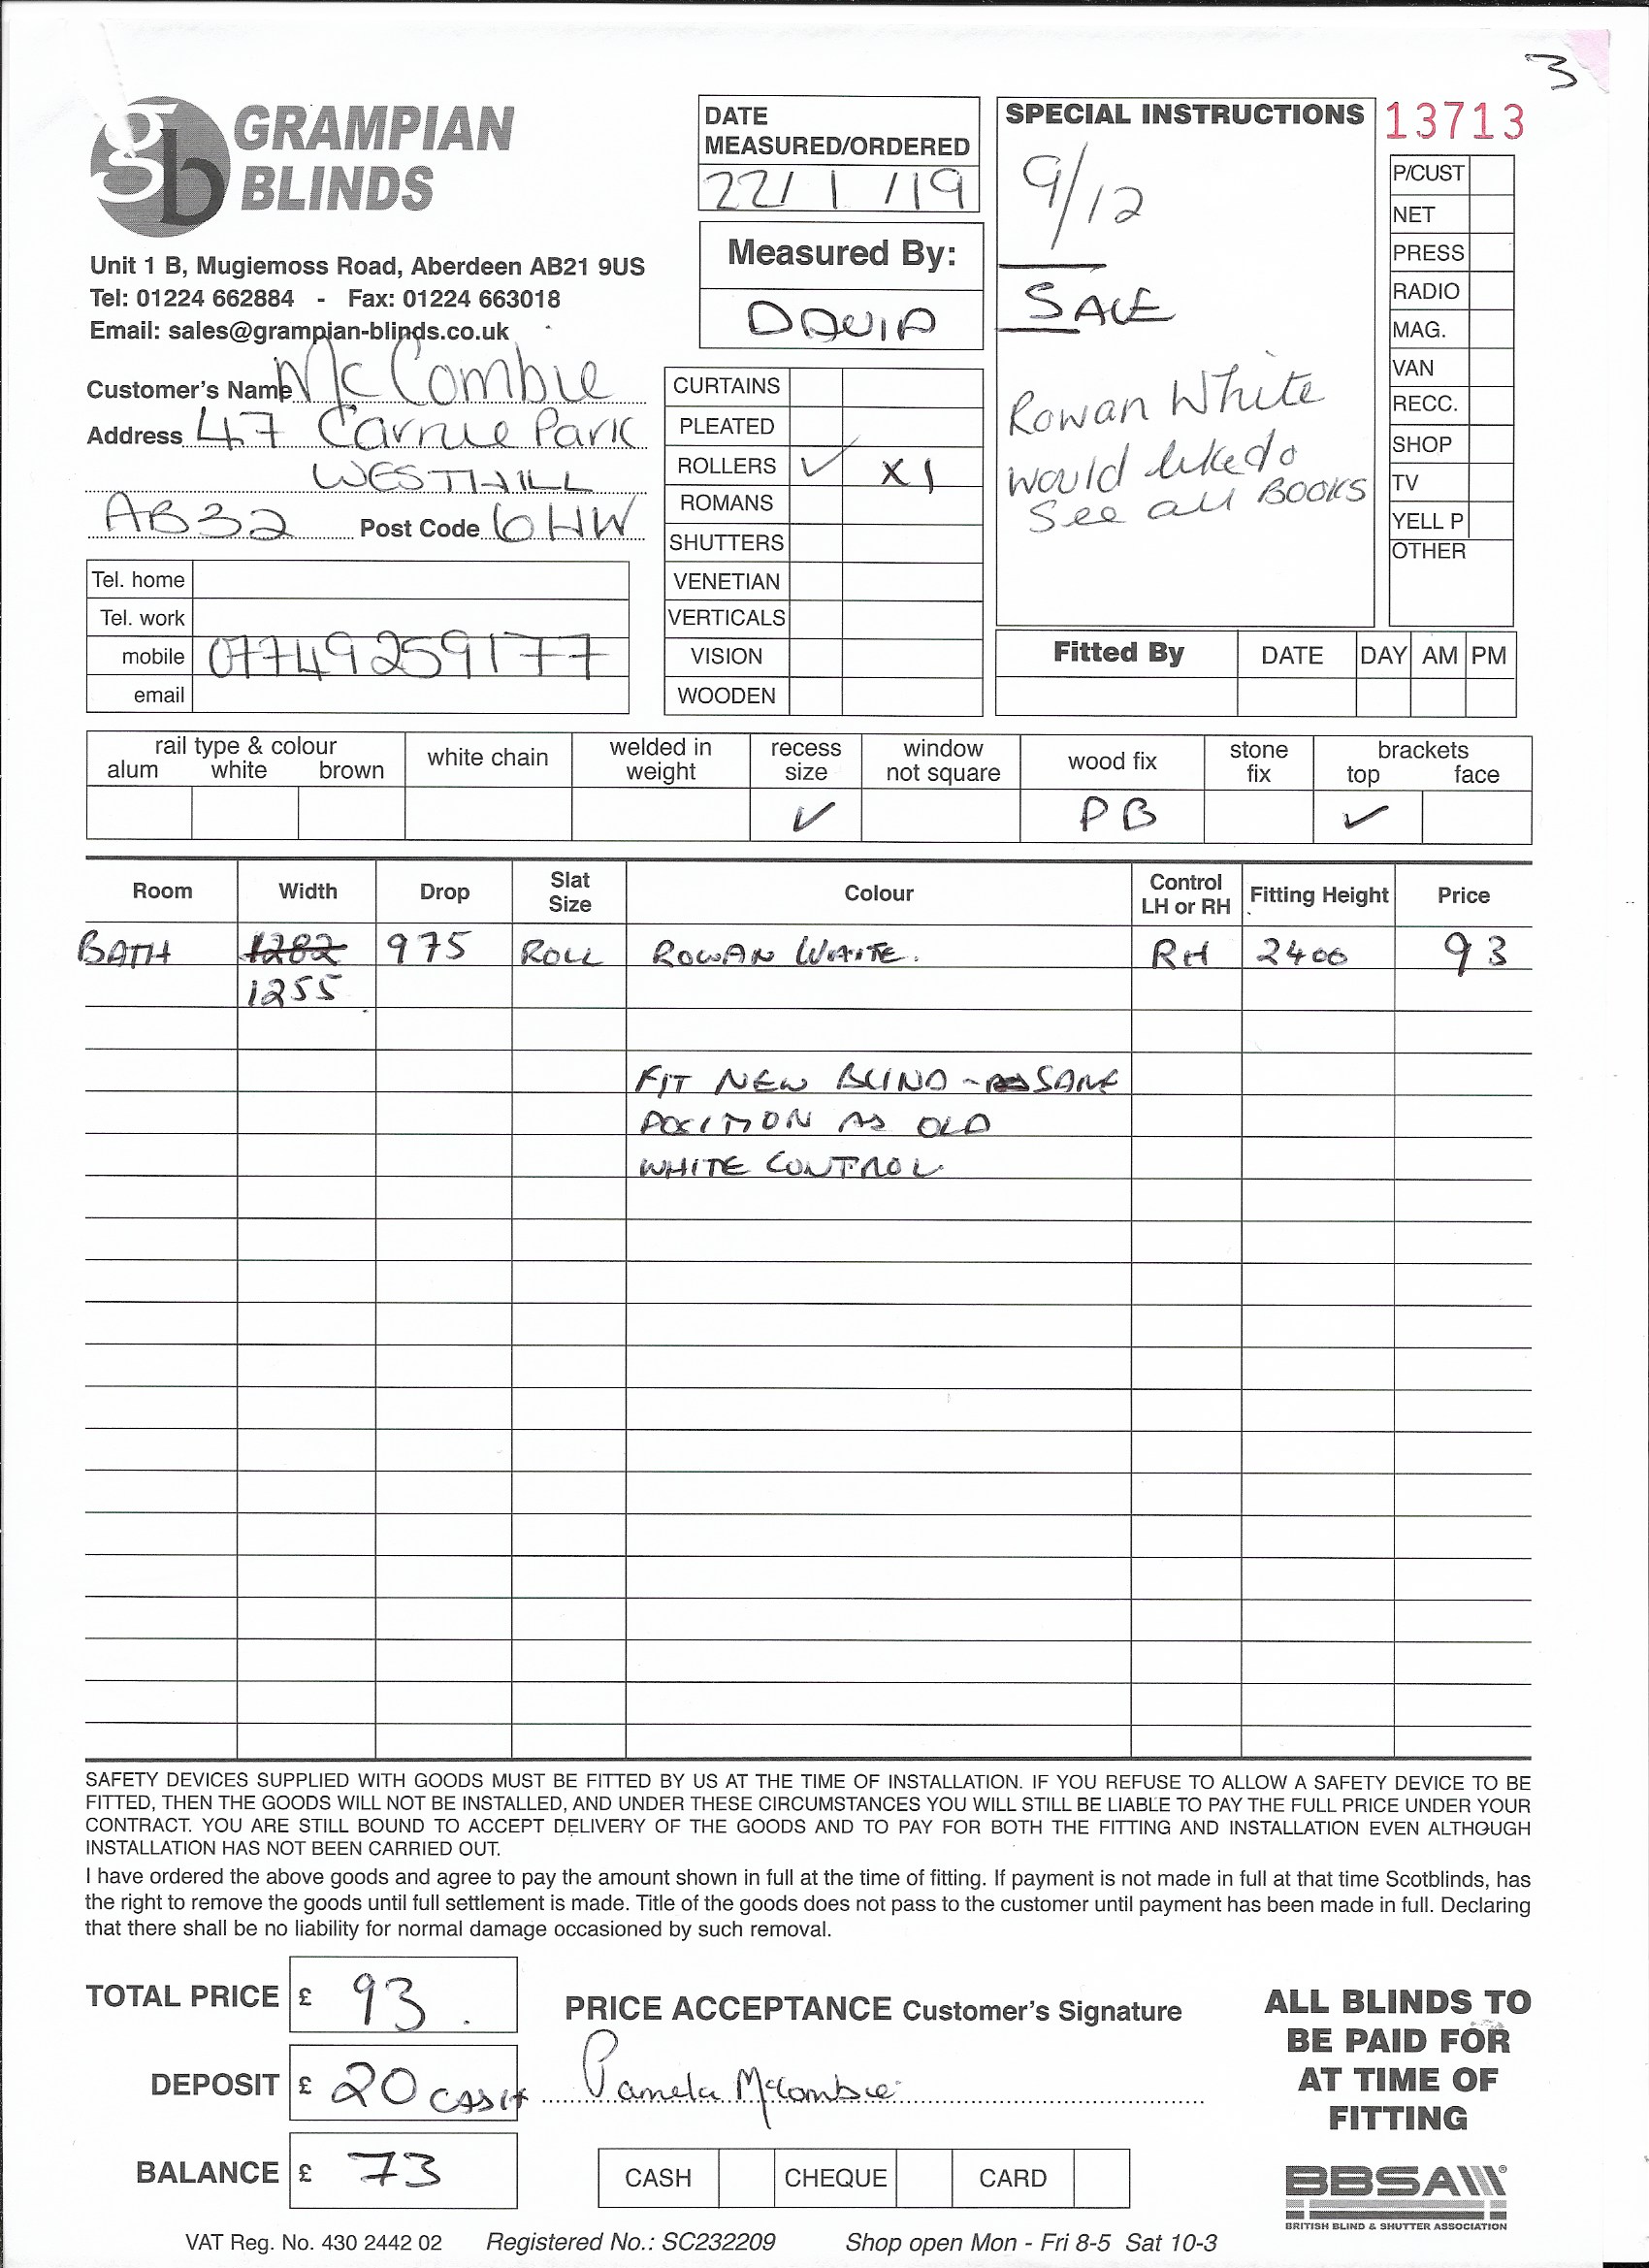 3
gb GRAMPIAN
BLINDS
Unit 1 B, Mugiemoss Road, Aberdeen AB21 9US
Tel: 01224 662884 - Fax: 01224 663018
Email: sales@grampian-blinds.co.uk
Customer's Name McCombie
Address 47 Carnie Park
WESTHILL
AB32 Post Code 6HW
Tel. home
Tel. work
mobile 07749259177
email
DATE
MEASURED/ORDERED
22/1/19
Measured By:
DAVID
CURTAINS
PLEATED
ROLLERS ✓ X1
ROMANS
SHUTTERS
VENETIAN
VERTICALS
VISION
WOODEN
SPECIAL INSTRUCTIONS
9/12
SALE
Rowan White
would like to
See all BOOKS
13713
P/CUST
NET
PRESS
RADIO
MAG.
VAN
RECC.
SHOP
TV
YELL P
OTHER
Fitted By DATE DAY AM PM
rail type & colour
alum white brown
white chain
welded in
weight
recess
size
window
not square
wood fix
stone
fix
brackets
top face
✓ PB ✓
Room Width Drop Slat Size Colour Control LH or RH Fitting Height Price
BATH 1282 975 ROLL ROWAN WHITE. RH 2400 93
1255
FIT NEW BLIND - AS SAME
POSITION AS OLD
WHITE CONTROL
SAFETY DEVICES SUPPLIED WITH GOODS MUST BE FITTED BY US AT THE TIME OF INSTALLATION. IF YOU REFUSE TO ALLOW A SAFETY DEVICE TO BE
FITTED, THEN THE GOODS WILL NOT BE INSTALLED, AND UNDER THESE CIRCUMSTANCES YOU WILL STILL BE LIABLE TO PAY THE FULL PRICE UNDER YOUR
CONTRACT. YOU ARE STILL BOUND TO ACCEPT DELIVERY OF THE GOODS AND TO PAY FOR BOTH THE FITTING AND INSTALLATION EVEN ALTHOUGH
INSTALLATION HAS NOT BEEN CARRIED OUT.
I have ordered the above goods and agree to pay the amount shown in full at the time of fitting. If payment is not made in full at that time Scotblinds, has
the right to remove the goods until full settlement is made. Title of the goods does not pass to the customer until payment has been made in full. Declaring
that there shall be no liability for normal damage occasioned by such removal.
TOTAL PRICE £ 93.
DEPOSIT £ 20 CASH
BALANCE £ 73
PRICE ACCEPTANCE Customer's Signature
Pamela McCombie
CASH CHEQUE CARD
ALL BLINDS TO
BE PAID FOR
AT TIME OF
FITTING
BBSA
BRITISH BLIND & SHUTTER ASSOCIATION
VAT Reg. No. 430 2442 02 Registered No.: SC232209 Shop open Mon - Fri 8-5 Sat 10-3